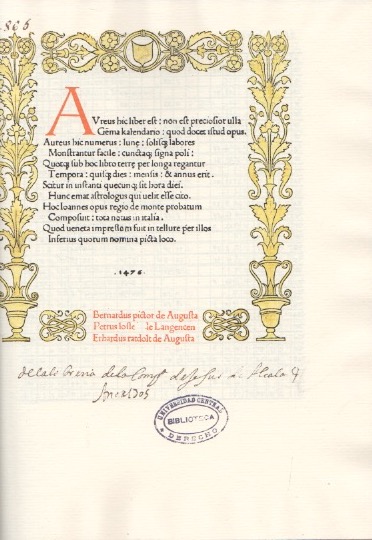 AVreus hic liber est: non est preciosior ulla
Gēma kalendario: quod docet istud opus.
Aureus hic numerus: lune: solisq; labores
Monstrantur facile: cunctaq; signa poli:
Quotq; sub hoc libro terre per longa regantur
Tempora: quisq; dies: mensis: & annus erit.
Scitur in instanti quecunq; sit hora diei.
Hunc emat astrologus qui uelit esse cito.
Hoc Ioannes opus regio de monte probatum
Composuit: tota notus in italia.
Quod ueneta impressum fuit in tellure per illos
Inferius quorum nomina picta loco.
.1476.
Bernardus pictor de Augusta
Petrus loslein de Langencen
Erhardus ratdolt de Augusta
UNIVERSIDAD CENTRAL
BIBLIOTECA
DERECHO